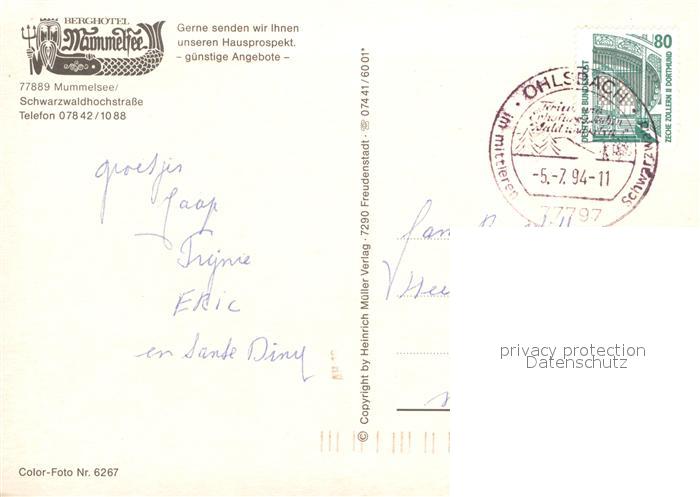 BERGHOTEL
Mummelsee
Gerne senden wir Ihnen
unseren Hausprospekt.
– günstige Angebote –
77889 Mummelsee/
Schwarzwaldhochstraße
Telefon 07842/1088
groetjes
Jaap
Trijnie
ERIC
en Sante Diny
Color-Foto Nr. 6267
© Copyright by Heinrich Müller Verlag · 7290 Freudenstadt · ☏ 07441/6001*
80
DEUTSCHE BUNDESPOST
ZECHE ZOLLERN II DORTMUND
· OHLSBACH ·
im mittleren Schwarzwald
-5.-7.94-11
77797
privacy protection
Datenschutz